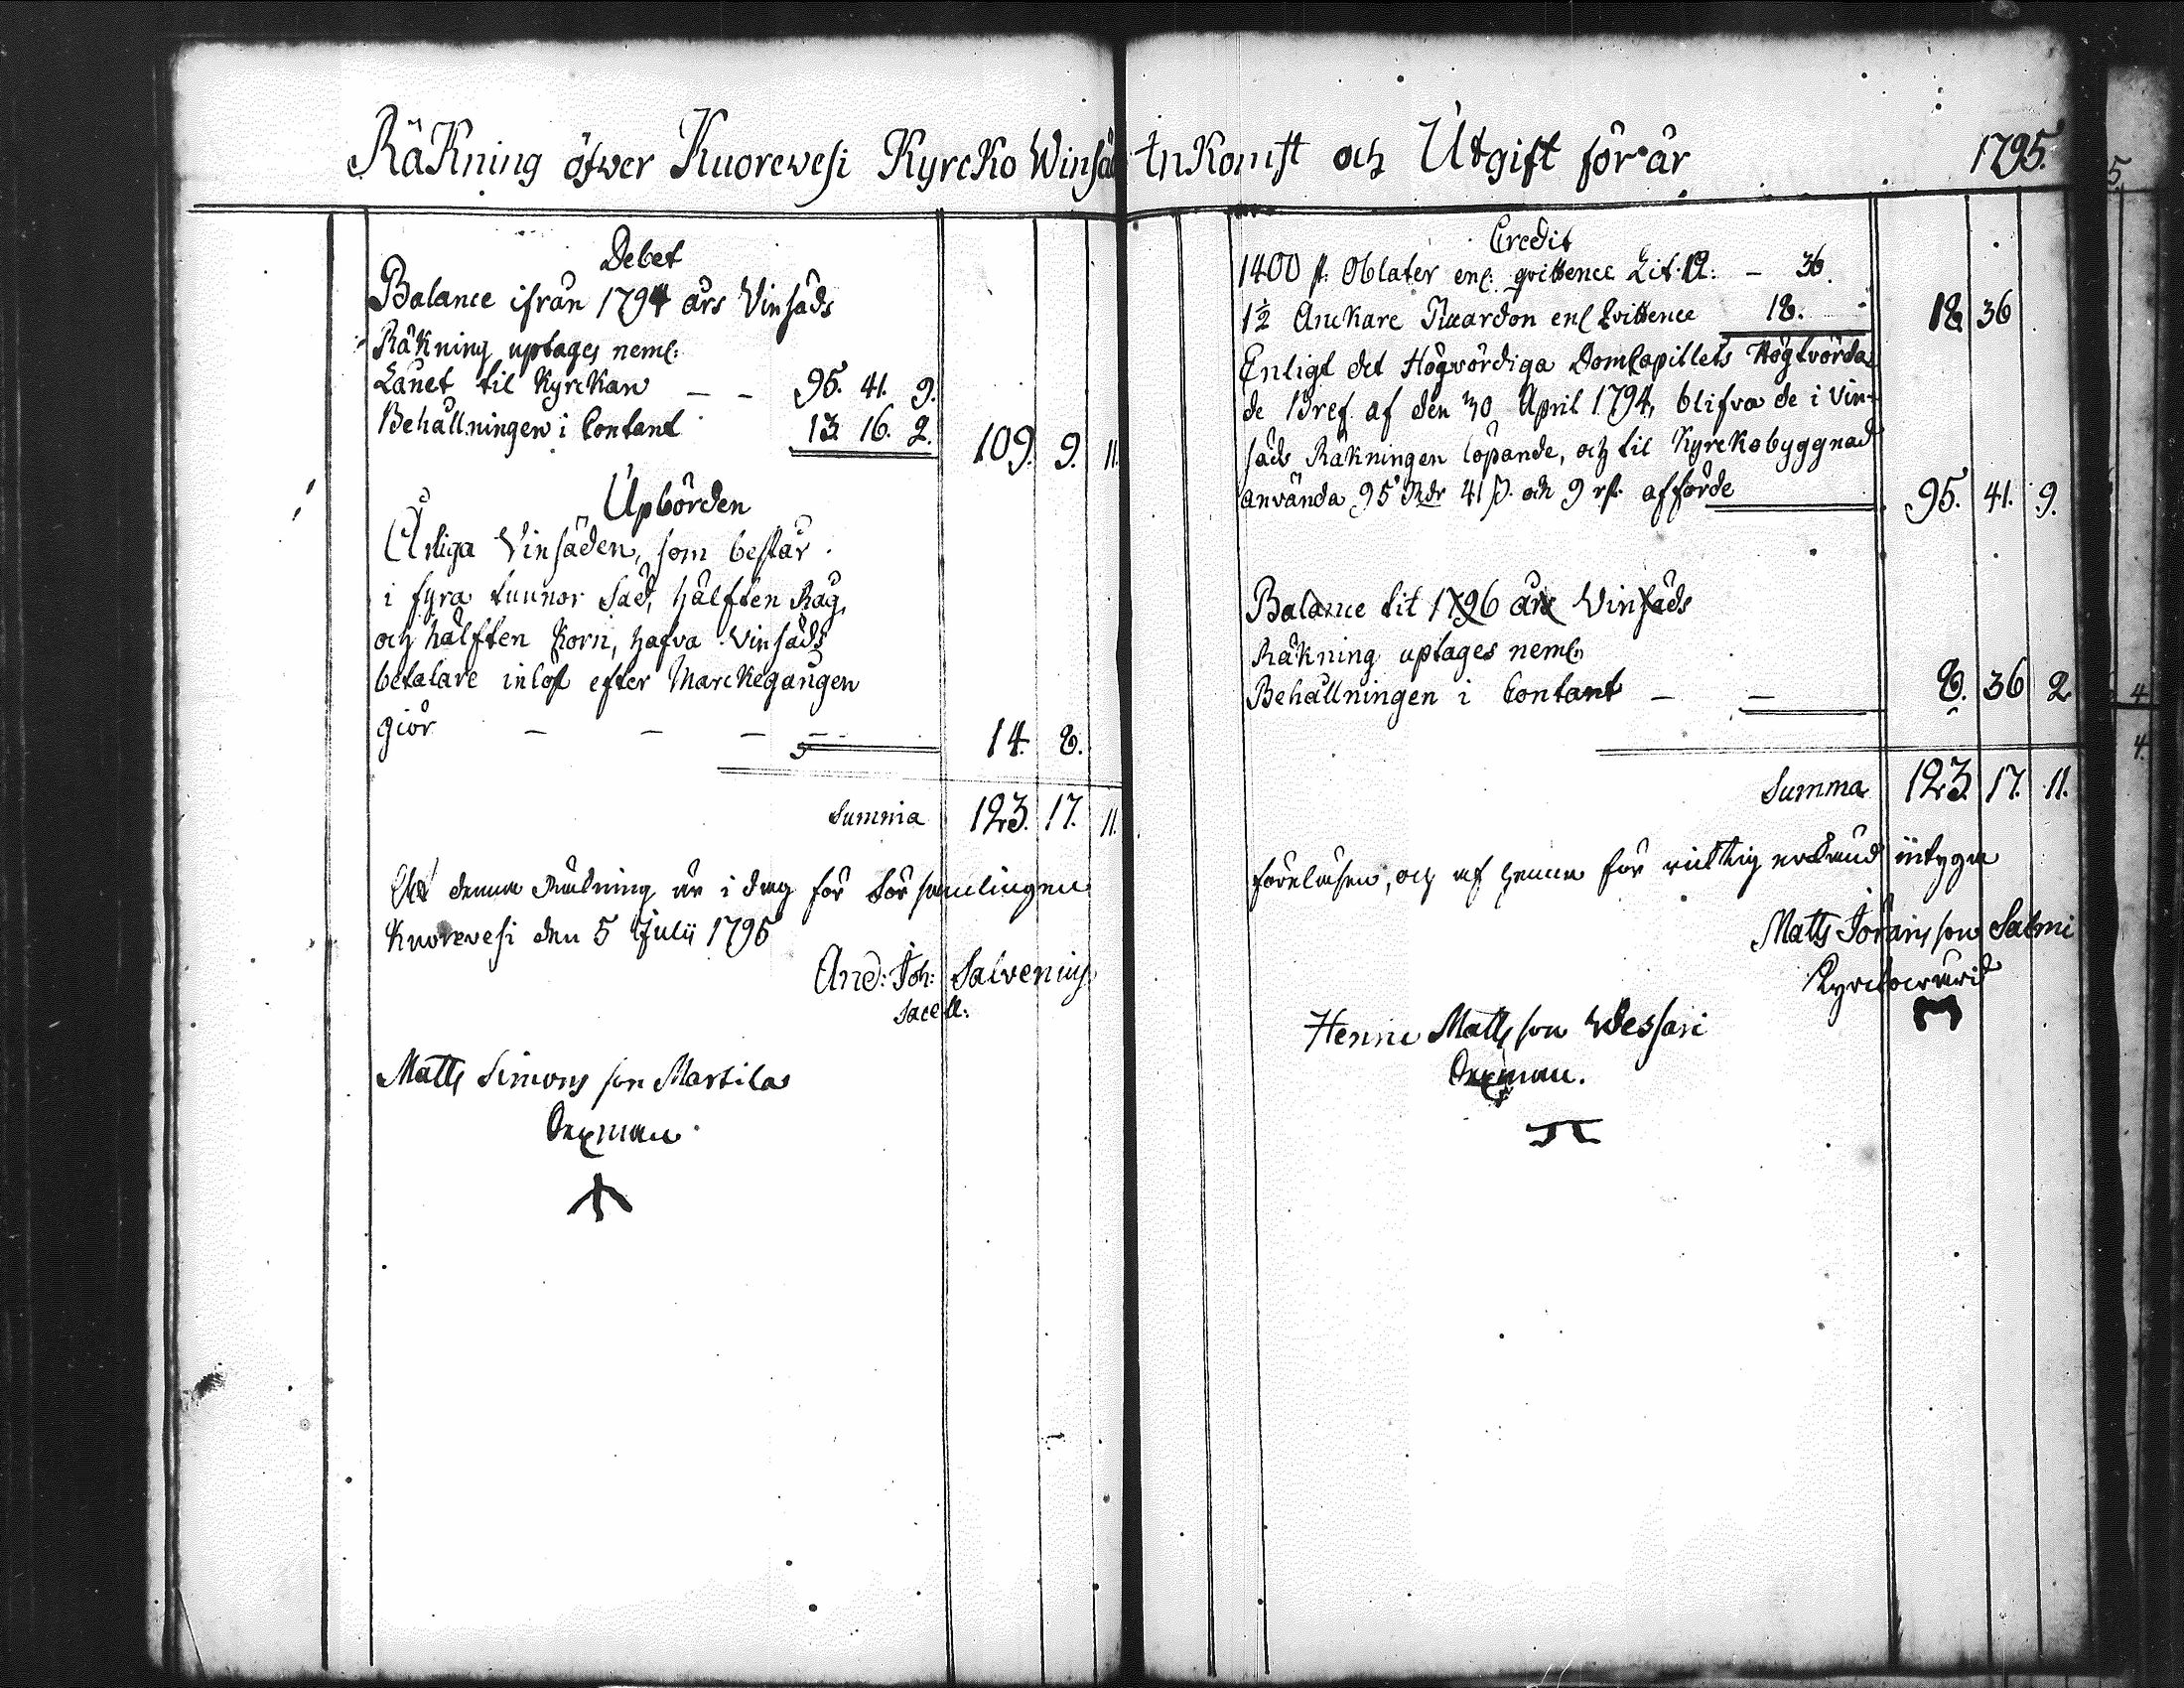 Räkning öfwer Kuorevesi Kyrcko Winsäd Inkomst och Utgift för år 1795.
Debet
Balance ifrån 1794 års Vinsäds
Räkning uptages neml:
Lånet til Kyrckan – – 95. 41. 9.
Behållningen i Contant 13. 16. 2. 109. 9. 11.
Upbörden
Årliga Vinsäden, som består
i fyra tunnor Säd, hälften Råg,
och hälften Korn, hafva Vinsäds
betalare inlöst efter Marckegången
giör – – – – 14. 8.
Summa 123. 17. 11.
At denna Räkning är i dag för Församlingen
Kuorevesi den 5 Julii 1795
And: Joh: Salvenius
Sacell:
Matts Simons son Martila
Sexman
Credit
1400 st: Oblater enl: qvittence Lit. A: – 36.
1½ Anckare enl Qvittence 18. - 18. 36
Enligt det Högvördiga DomCapitlets Högtvörda
de Bref af den 30 April 1794, blifva de i Vin-
säds Räkningen löpande, och til Kyrckobyggnad
använda 95 Rdr 41 ß. och 9 rst. afförde 95. 41. 9.
Balance til 1796 års Vinsäds
Räkning uptages neml:
Behållningen i Contant – – 8. 36 2
Summa 123. 17. 11.
föreläsen, och af henne för richtig erkänd intyga
Matts Jörans son Salmi
Kyrckovärd
Matts son Wessari
Sexman.
5.
4
4.